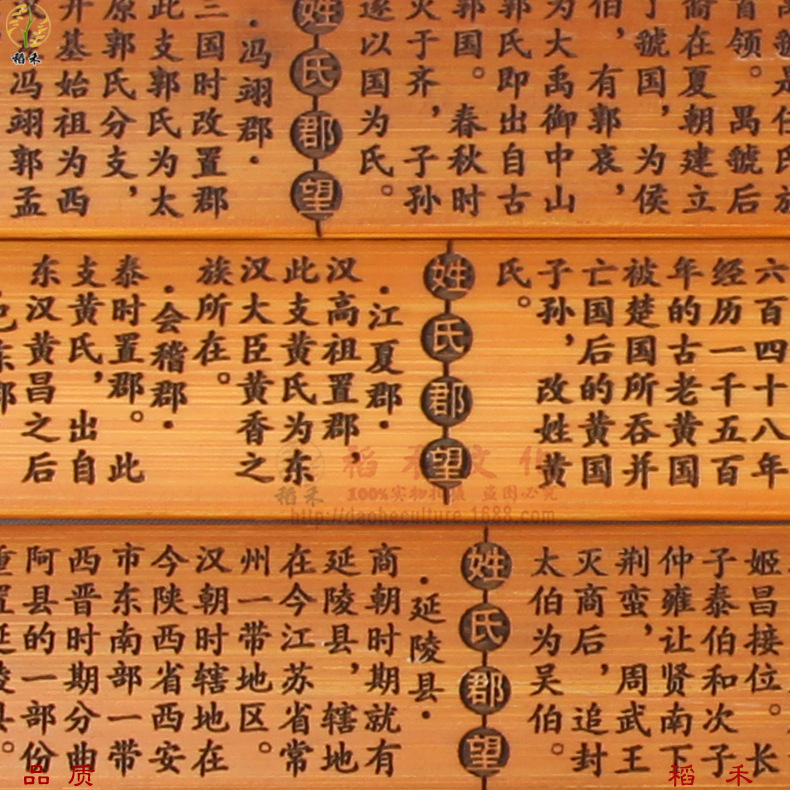 稻禾
禺虢是任氏族
首领。禺虢后
裔在夏朝建立
了虢国，为侯
伯，有郭哀，
为大禹御中山
郭氏即出自古
郭国。春秋时
灭于齐，子孙
遂以国为氏。
姓氏郡望
·冯翊郡·
三国时改置郡
此支郭氏为太
原郭氏分支，
开基始祖为西
冯翊郭孟
六百四十八年
经历一千五百
年的古老黄国
被楚国所吞并
亡国后的黄国
子孙，改姓黄
氏。
姓氏郡望
·江夏郡·
汉高祖置郡，
此支黄氏为东
汉大臣黄香之
族所在。
·会稽郡·
泰时置郡。此
支黄氏，出自
东汉黄昌之后
东郡
稻禾文化
稻禾
100%实物拍摄 盗图必究
http://daoheculture.1688.com
姬昌接位。长
子泰伯和次子
仲雍让贤南下
荆蛮，周武王
灭商后，追封
太伯为吴伯。
姓氏郡望
·延陵县·
商朝时期就有
延陵县，辖地
在今江苏省常
州一带地区。
汉朝时辖地在
今陕西省西安
市东南部一带
西晋时期分曲
阿县的一部份
重置延陵县。
品质
稻禾